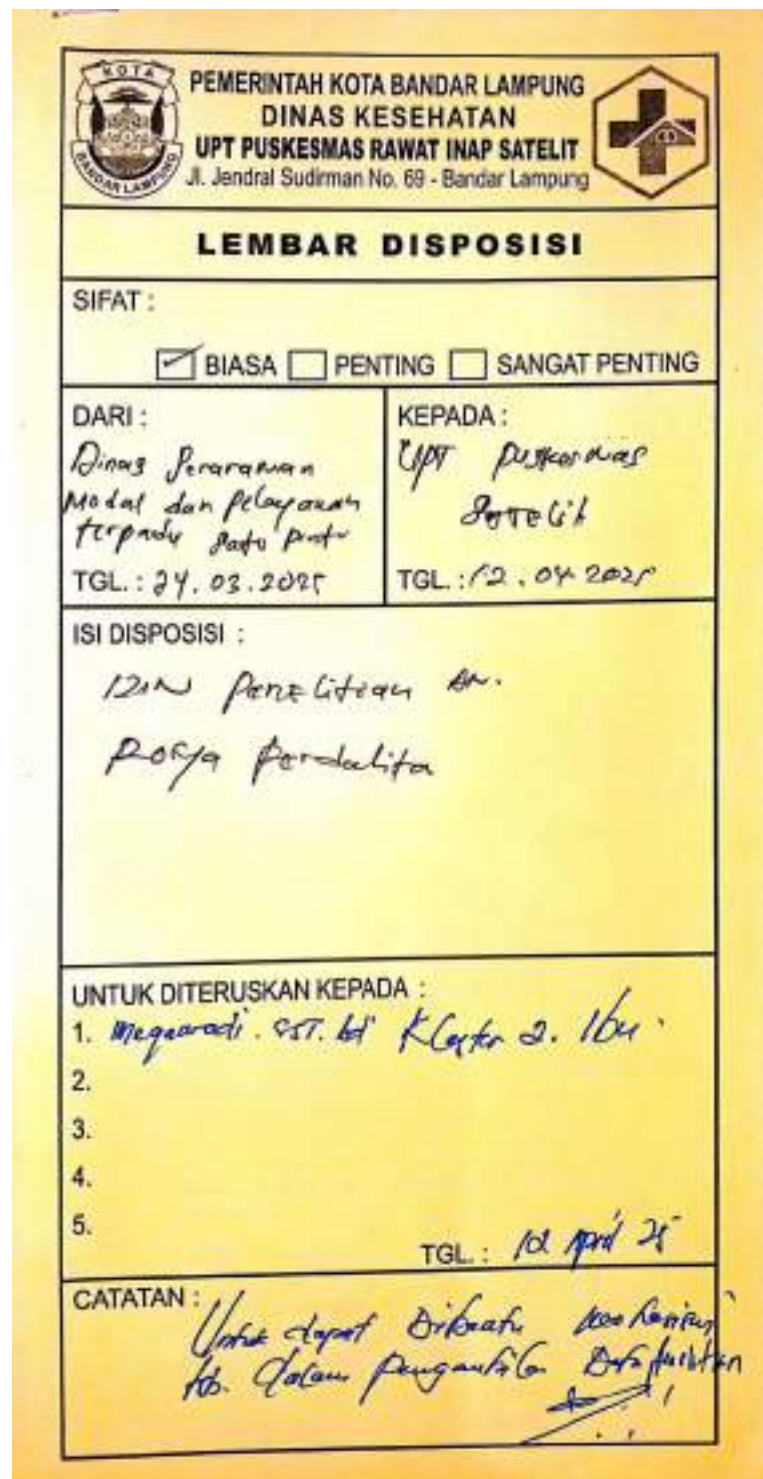 KOTA
BANDAR LAMPUNG
PEMERINTAH KOTA BANDAR LAMPUNG
DINAS KESEHATAN
UPT PUSKESMAS RAWAT INAP SATELIT
Jl. Jendral Sudirman No. 69 - Bandar Lampung
LEMBAR DISPOSISI
SIFAT :
BIASA PENTING SANGAT PENTING
DARI :
Dinas Penanaman
Modal dan Pelayanan
terpadu satu pintu
TGL. : 24.03.2025
KEPADA :
UPT Puskesmas
Satelit
TGL. : 12.04.2025
ISI DISPOSISI :
IZIN Penelitian An.
UNTUK DITERUSKAN KEPADA :
1. SST. Klaster 2. Ibu
2.
3.
4.
5.
TGL. : April 25
CATATAN :
Untuk dapat Dibantu
dalam Data